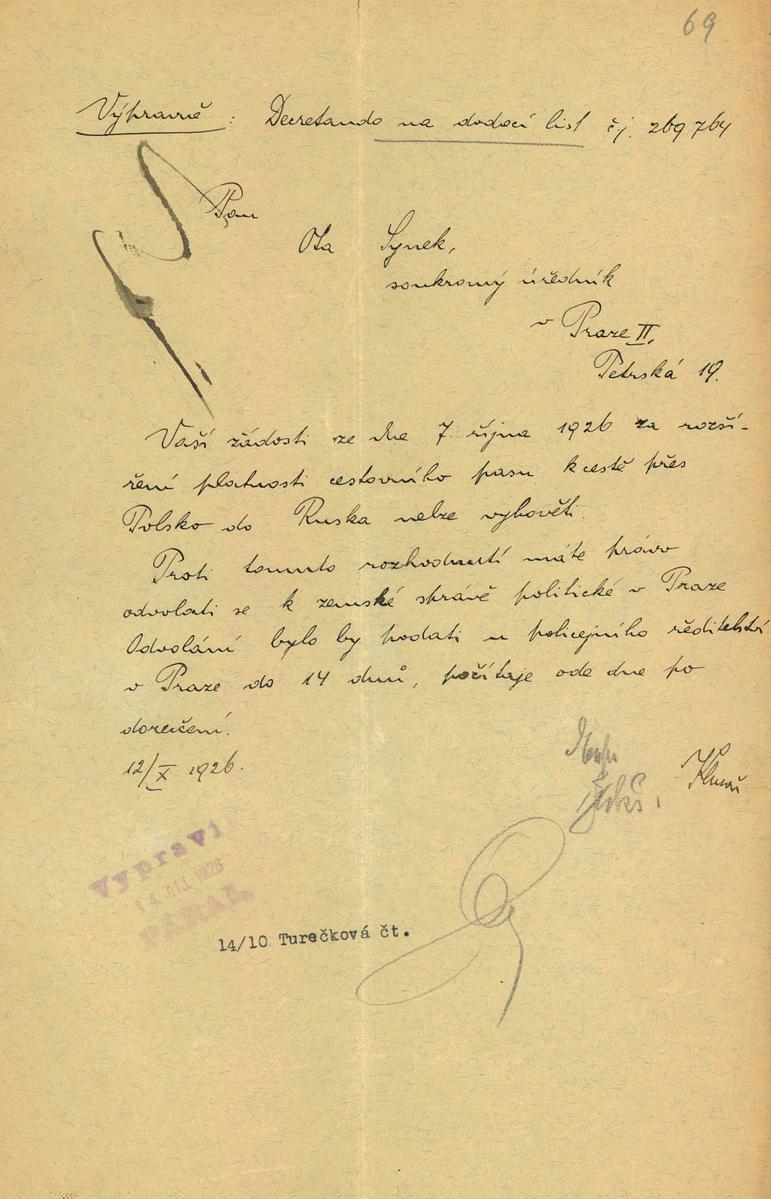 69
Výpravně : Decretando na dodací list čj. 269764
Pan
Ota Synek,
soukromý úředník
v Praze II,
Petrská 19.
Vaší žádosti ze dne 7. října 1926 za rozší-
ření platnosti cestovního pasu k cestě přes
Polsko do Ruska nelze vyhověti.
Proti tomuto rozhodnutí máte právo
odvolati se k zemské správě politické v Praze
Odvolání bylo by podati u policejního ředitelství
v Praze do 14 dnů, počítaje ode dne po
doručení.
12/X 1926.
Vypravil
14. ŘÍJ. 1926
14/10 Turečková čt.